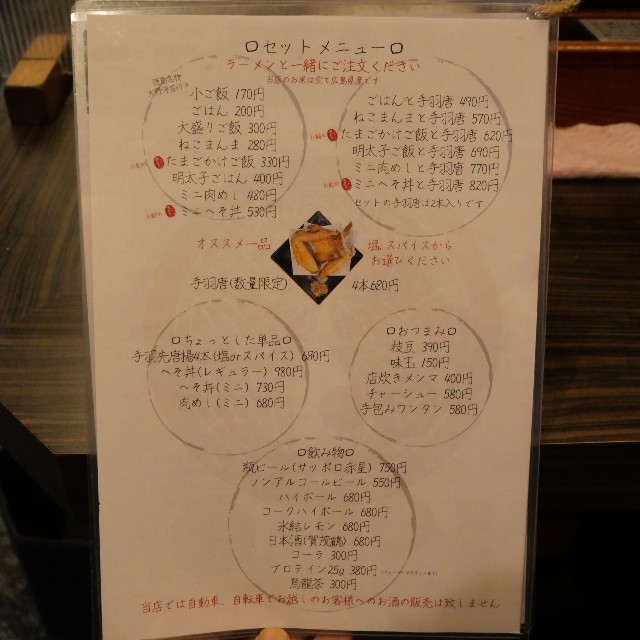 ロセットメニューロ
ラーメンと一緒にご注文ください
当店のお米は全て広島県産です
小ご飯 170円
ごはん 200円
大盛りご飯 300円
ねこまんま 280円
たまごかけご飯 330円
明太子ごはん 400円
ミニ肉めし 480円
ミニへそ丼 530円
ごはんと手羽唐 490円
ねこまんまと手羽唐 570円
たまごかけご飯と手羽唐 620円
明太子ご飯と手羽唐 690円
ミニ肉めしと手羽唐 770円
ミニへそ丼と手羽唐 820円
セットの手羽唐は2本入りです
オススメ一品
塩、スパイスから
お選びください
手羽唐(数量限定) 4本680円
ロちょっとした単品ロ
手羽先唐揚4本(塩orスパイス) 680円
へそ丼(レギュラー) 980円
へそ丼(ミニ) 730円
肉めし(ミニ) 680円
ロおつまみロ
枝豆 390円
味玉 150円
店炊きメンマ 400円
チャーシュー 580円
手包みワンタン 580円
ロ飲み物ロ
瓶ビール(サッポロ赤星) 750円
ノンアルコールビール 550円
ハイボール 680円
コークハイボール 680円
氷結レモン 680円
日本酒(賀茂鶴) 680円
コーラ 300円
プロテイン25g 380円
烏龍茶 300円
当店では自動車、自転車でお越しのお客様へのお酒の販売は致しません